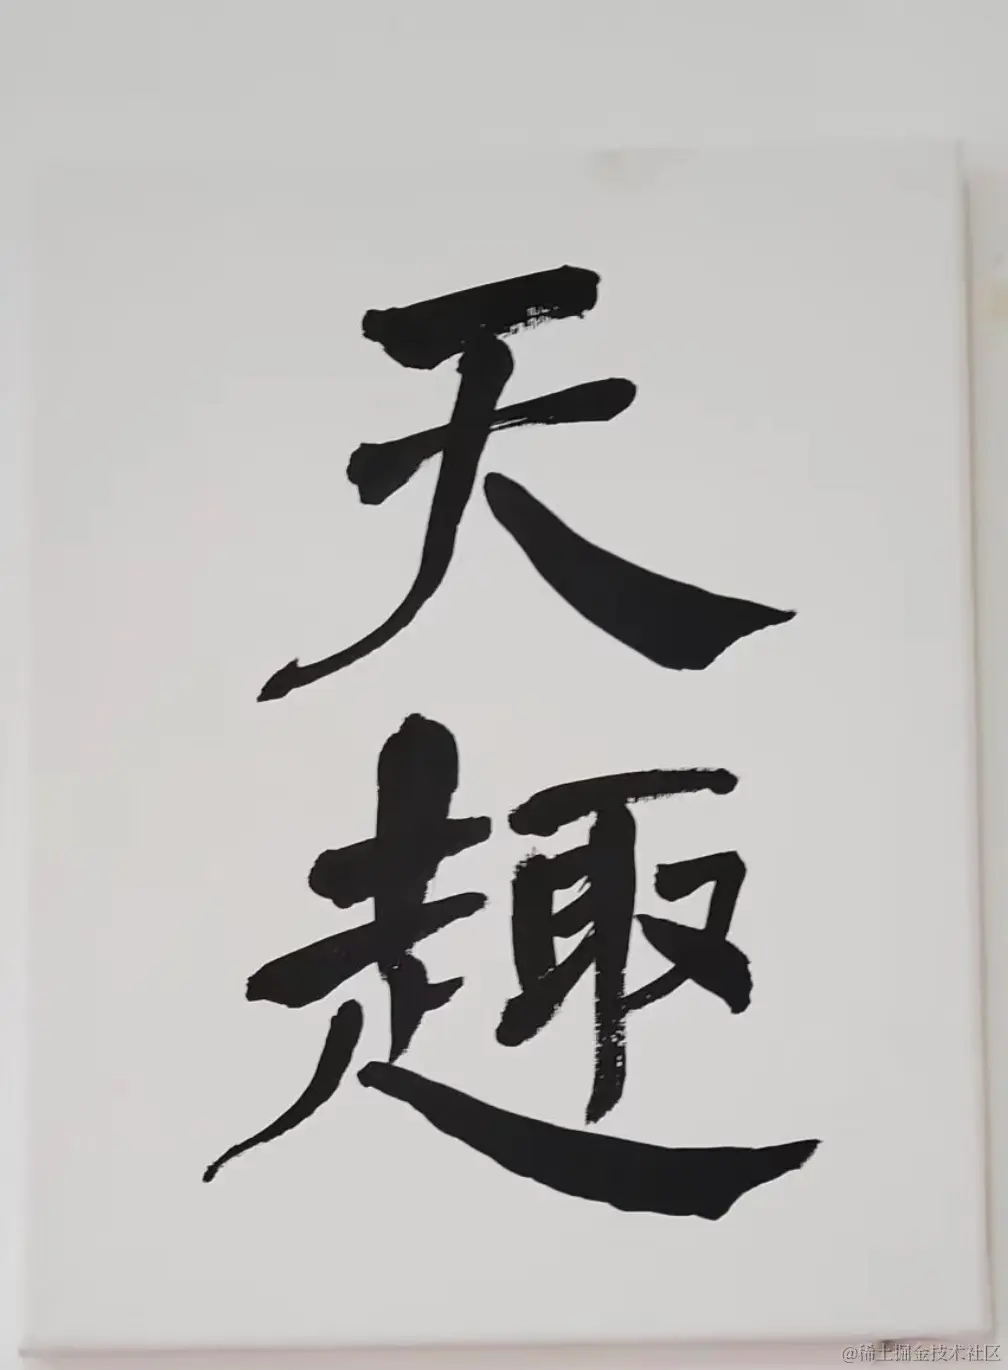 天
趣
@稀土掘金技术社区